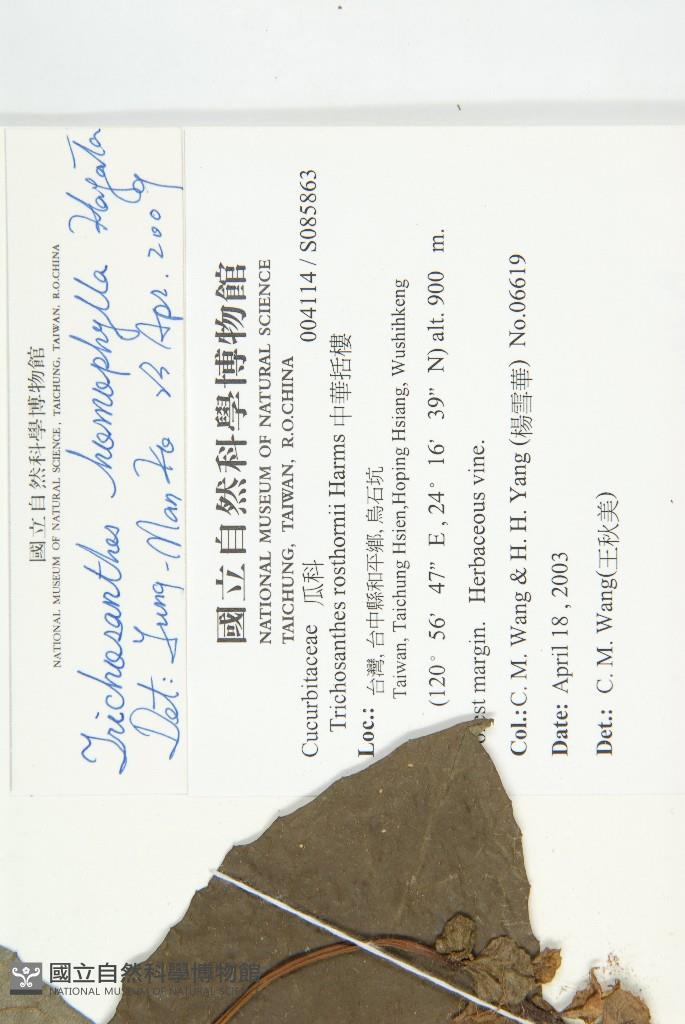 國立自然科學博物館
NATIONAL MUSEUM OF NATURAL SCIENCE, TAICHUNG, TAIWAN, R.O.CHINA
Trichosanthes homophylla Hayata
Det: Jung-Nan Ko 23 Apr. 2009
國立自然科學博物館
NATIONAL MUSEUM OF NATURAL SCIENCE
TAICHUNG, TAIWAN, R.O.CHINA
Cucurbitaceae 瓜科 004114 / S085863
Trichosanthes rosthornii Harms 中華括樓
Loc.: 台灣, 台中縣和平鄉, 烏石坑
Taiwan, Taichung Hsien,Hoping Hsiang, Wushihkeng
(120° 56' 47" E , 24° 16' 39" N) alt. 900 m.
margin. Herbaceous vine.
Col.: C. M. Wang & H. H. Yang (楊雪華) No.06619
Date: April 18 , 2003
Det.: C. M. Wang(王秋美)
國立自然科學博物館
NATIONAL MUSEUM OF NATURAL SCIENCE